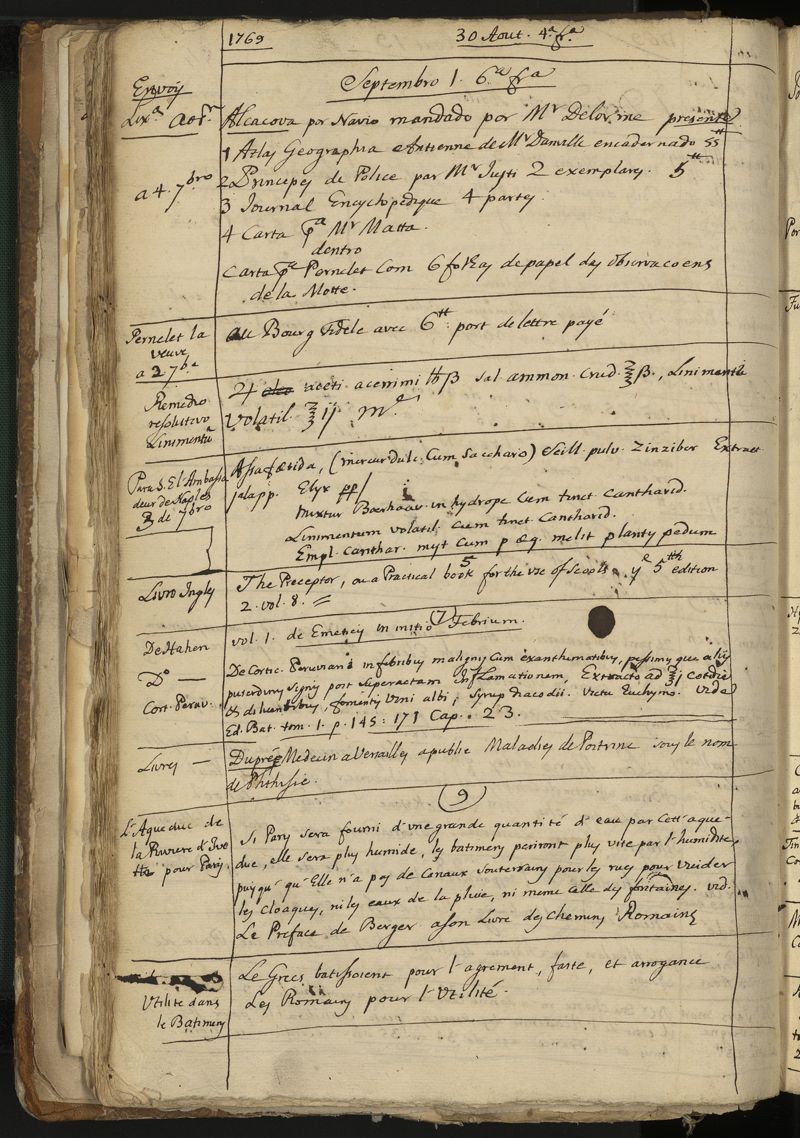 1769
30 Aout. 4.ª fr.ª
Septembro 1. 6.ª fr.ª
Envoy
Lix.ª ao Sr
Alcacova por Navio mandado por Mr Delorme presente
1 Atlas Geographia Antienne de Mr Danville encadernado 55 ₶
a 4. 7bro
2 Principes de Police par Mr Justi 2 exemplares. 5 ₶
3 Journal Encyclopedique 4 partes.
4 Carta pª Mr Matta.
dentro
Carta pª Pernelet Com 6 folhas de papel das observacoens
de la Motte.
Pernelet la
veuve
a 2 7b.e
au Bourg Fidele avec 6 ₶ port de lettre payé
Remedio
resolutivo
Linimentū
♃ aceti acerrimi ℔ß sal ammon. Crud. ℥ß., Linimenti
Volatil ℥ij m.e
Para S. El. Ambassa
deur de Naples
3 de 7bro
Assafoetida, (mercur dulc. Cum Saccharo) Scill. pulv. Zinziber Extract
jalapp. Elyx pp/
mixtur Boerhaav. in hydrope Cum tinct Cantharid.
Linimentum volatil cum tinct Cantharid.
Empl. canthar. myt cum p æq. melit plantis pedum
Livro Ingles
The Preceptor, ou a Practical book for the vse of Scools 5 yᵉ 5th edition
2. vol. 8. =
7
De Hahen
vol. 1. de Emeticis in initio Febrium.
Dº —
Cort. Perav.
De Cortic. Peruviani in febribus malignis Cum exanthematibus, pessimis que aliis
putredinis signis post superactam Inflamationem, Extracto ad ℥j cotidie
& diluentibus, fomentis Vini albi, syrup diacodii. victu Euchymo. Vide
Ed. Bat. tom. 1. p. 145: 171 Cap. 23.
Livres —
Dupré Medecin a Versailles a publie Maladies de Poitrine sous le nom
de Phthisie.
9
L'Aqueduc de
la Riviere d'Ive
tte pour Paris
Si Paris sera fourni d'une grande quantité d'eau par Cett'aque-
duc, elle sera plus humide, les batimens periront plus vite par l'humidité
puisqu' qu'Elle n'a pas de Canaux Souterrains pour les rues pour Vuider
les Cloaques, ni les eaux de la pluie, ni meme Celle des fontaines. vid.
Le Preface de Berger a son Livre des Chemins Romains
Utilité dans
le Batimens
Le Grecs batissoient pour l'agrement, faste, et arrogance
Les Romains pour l'Utilité.